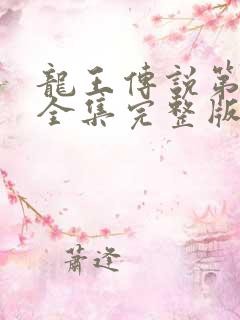 龍王傳說第
全集完整版
蕭逆